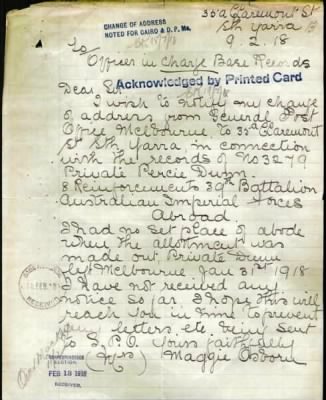 35a Claremont St
Sth Yarra
9.2.18
CHANGE OF ADDRESS
NOTED FOR CAIRD & D.P. Ms.
To
Officer in Charge Base Records
Acknowledged by Printed Card
Dear Sir
I wish to notify my change
of address from General Post
Office Melbourne, to 35a Claremont
St Sth Yarra, in connection
with the records of No 3279
Private Percie Dunn.
8 Reinforcements 39th Battalion
Australian Imperial Forces
Abroad.
I had no set place of abode
when the allotment was
made out. Private Dunn
left Melbourne Jan 31st 1918
I have not received any
notice so far. I hope this will
reach you in time to prevent
any letters, etc. being sent
to G.P.O. Yours faithfully
(Mrs) Maggie Osborn
RECEIVED
CORRESPONDENCE
SECTION
FEB 18 1918
RECEIVED.